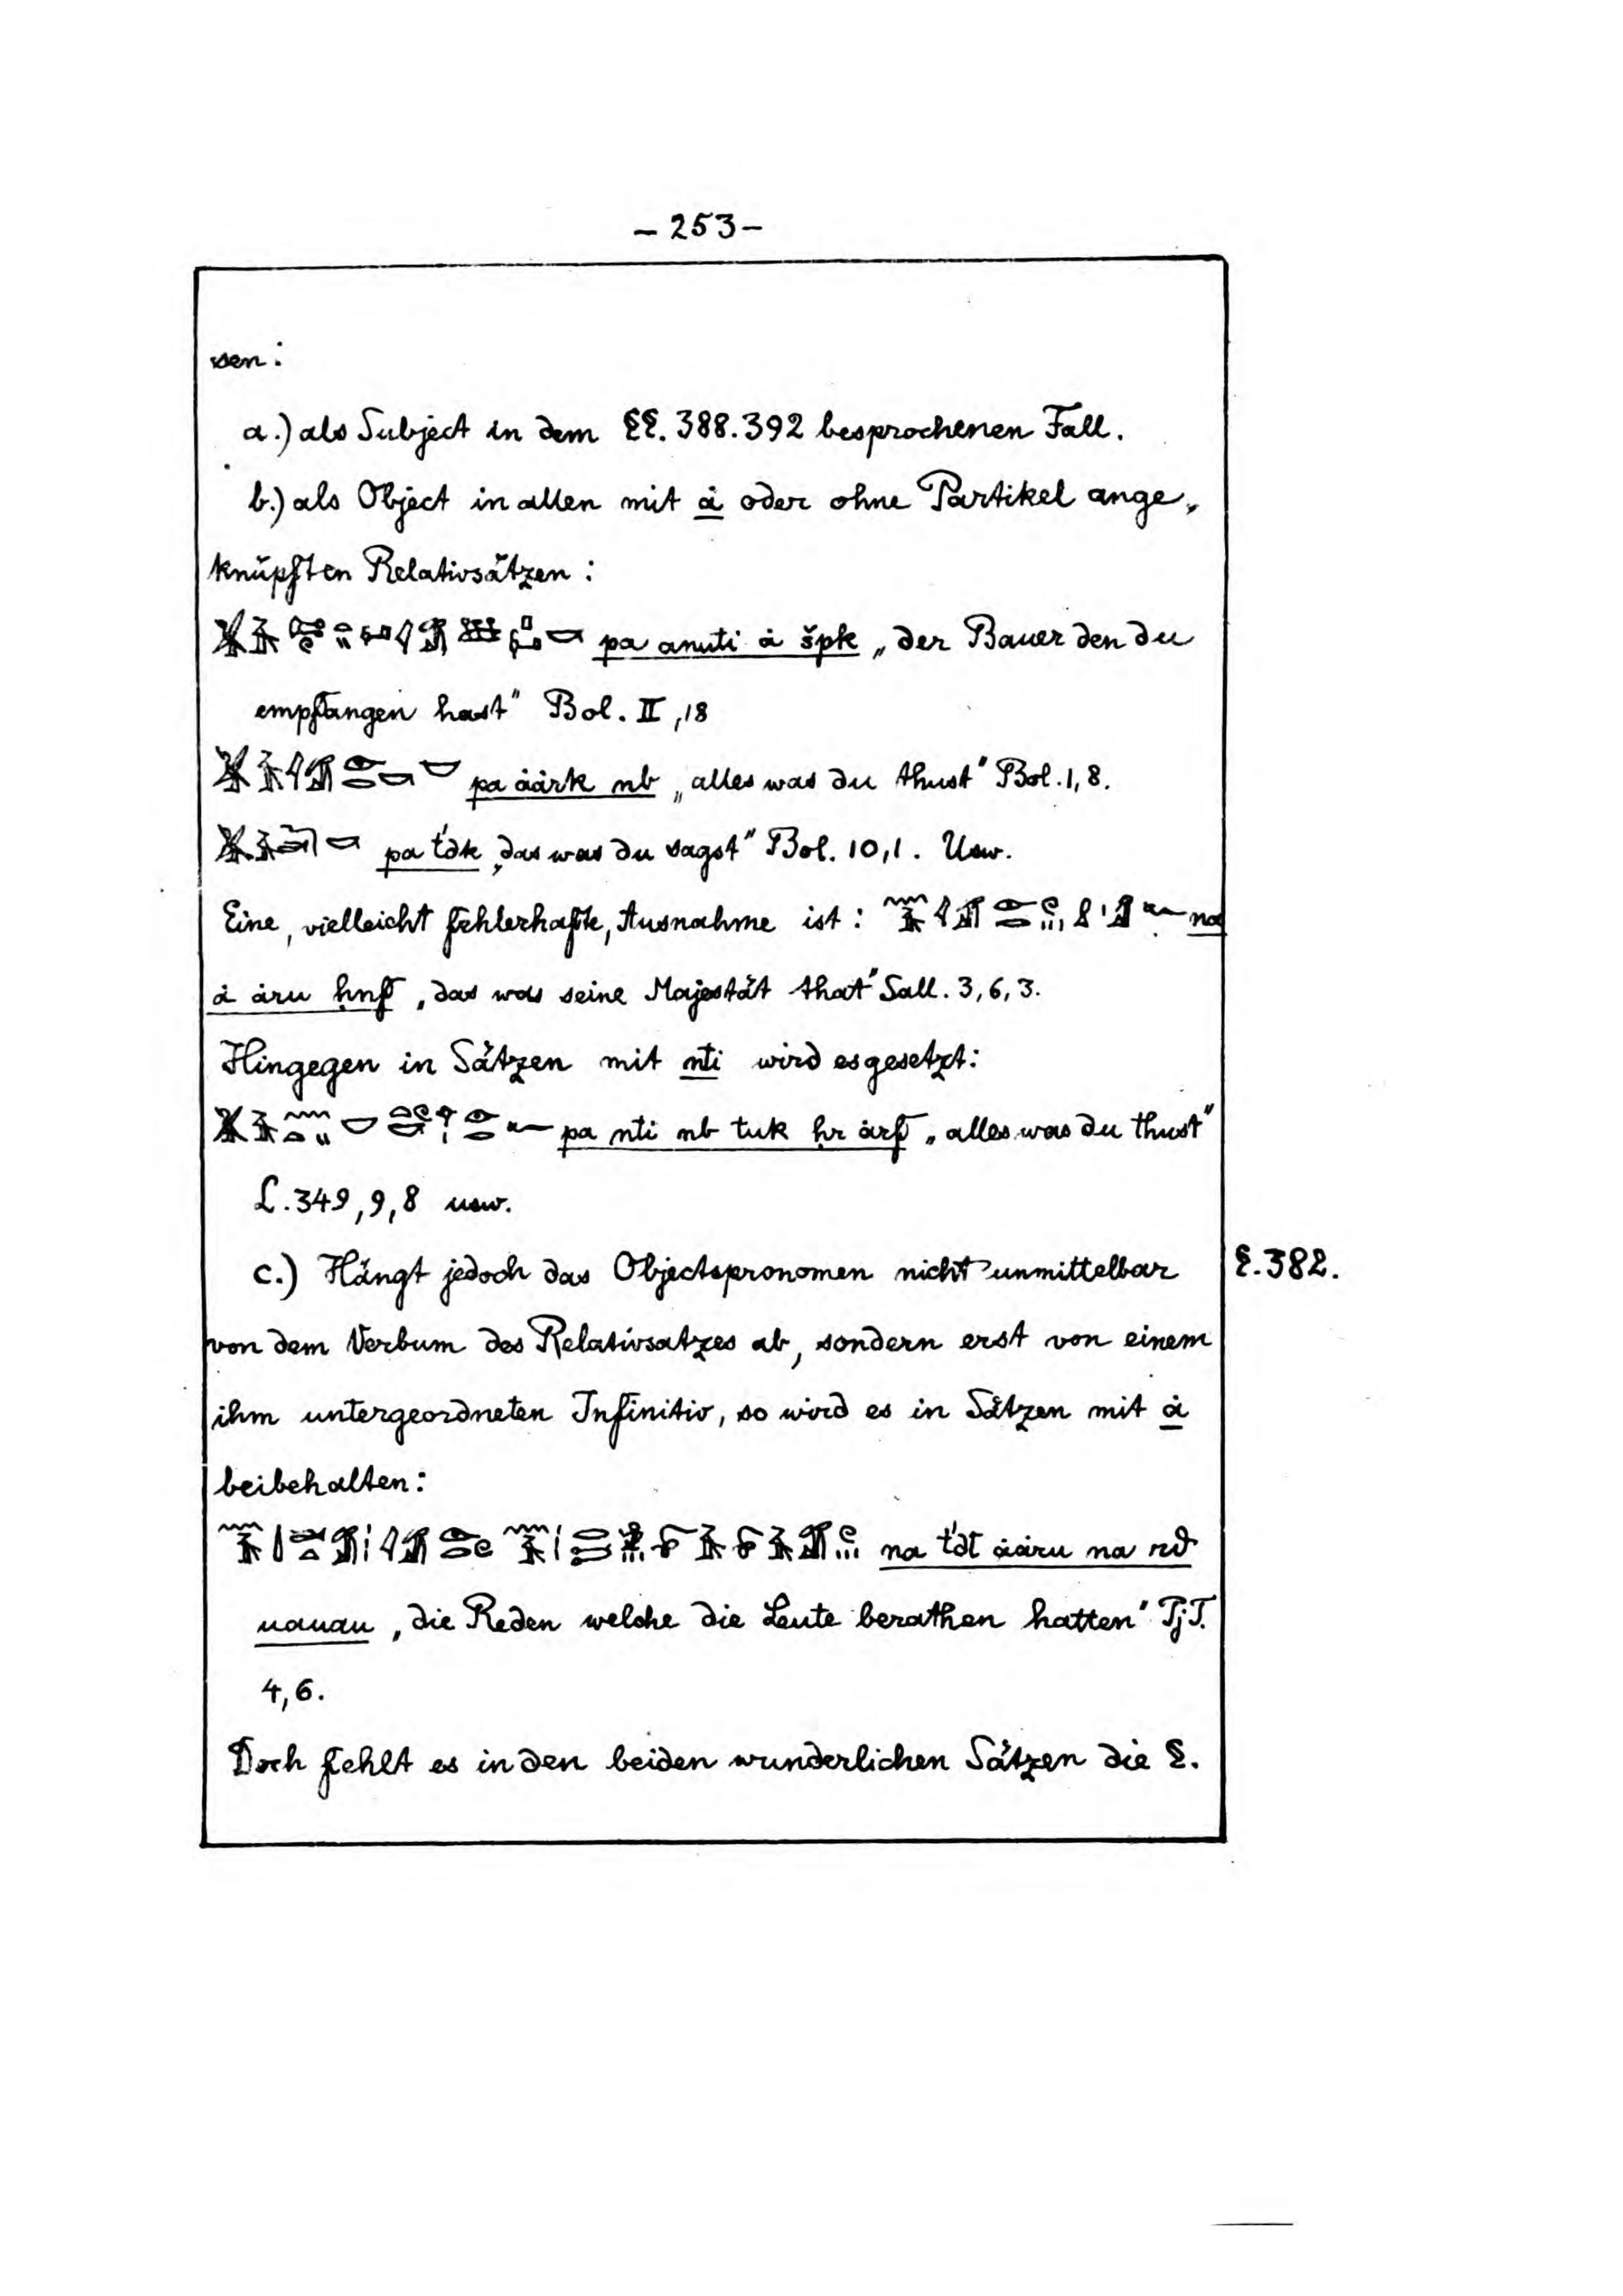 – 253 –
sen:
a.) als Subject in dem §§. 388.392 besprochenen Fall.
b.) als Object in allen mit ȧ oder ohne Partikel ange„
knüpften Relativsätzen:
pa anuti ȧ špk „der Bauer den du
empfangen hast" Bol. II, 18
pa ȧȧrk nb „alles was du thust" Bol. 1, 8.
pa t'dk „das was du sagst" Bol. 10, 1. Usw.
Eine, vielleicht fehlerhafte, Ausnahme ist: na
ȧ ȧru ḥnf „das was seine Majestät that" Sall. 3, 6, 3.
Hingegen in Sätzen mit nti wird es gesetzt:
pa nti nb tuk ḥr ȧrf „alles was du thust"
L. 349, 9, 8 usw.
c.) Hängt jedoch das Objectspronomen nicht unmittelbar
§. 382.
von dem Verbum des Relativsatzes ab, sondern erst von einem
ihm untergeordneten Infinitiv, so wird es in Sätzen mit ȧ
beibehalten:
na t'dt ȧȧru na
uauau „die Reden welche die Leute berathen hatten" Pj T.
4, 6.
Doch fehlt es in den beiden wunderlichen Sätzen die §.